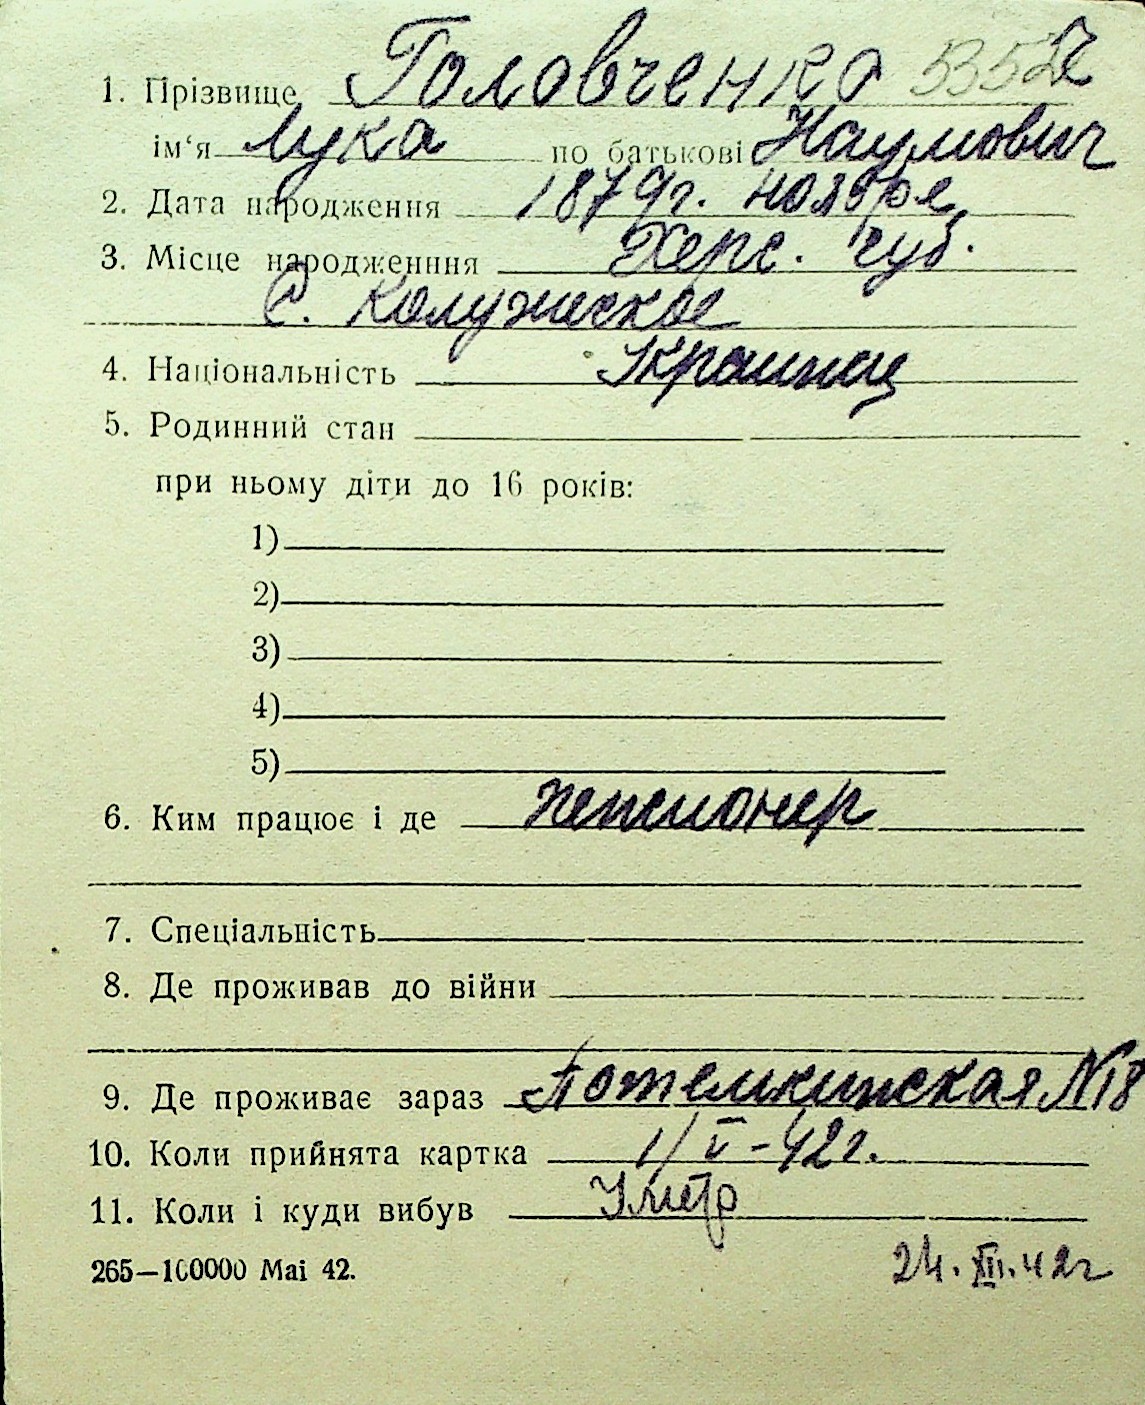 1. Прізвище Головченко
ім‘я Лука по батькові Наумович
2. Дата народження 1879г. ноября
3. Місце народженння Херс. губ.
С. Калужское
4. Національність Украинец
5. Родинний стан
при ньому діти до 16 років:
1)
2)
3)
4)
5)
6. Ким працює і де пенсионер
7. Спеціальність
8. Де проживав до війни
9. Де проживає зараз Потемкинская №18
10. Коли прийнята картка 1/V-42г.
11. Коли і куди вибув Умер
265—100000 Mai 42. 24.XII.42г